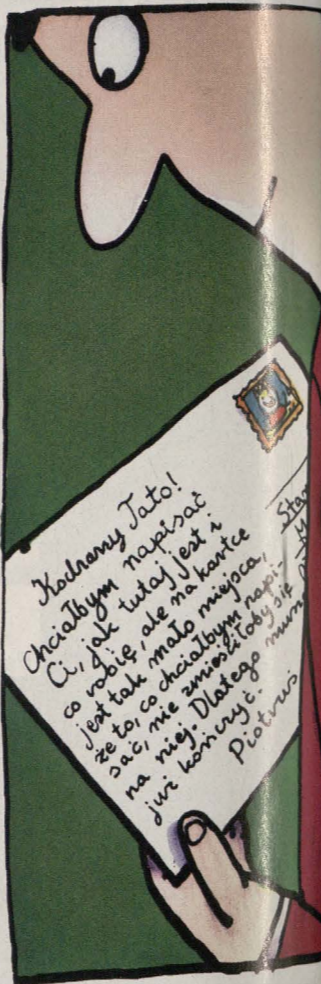 Kochany Tato!
Chciałbym napisać
Ci, jak tutaj jest i
co robię, ale na kartce
jest tak mało miejsca,
że to, co chciałbym napi-
sać, nie zmieściłoby się
na niej. Dlatego
już kończyć.
Piotruś